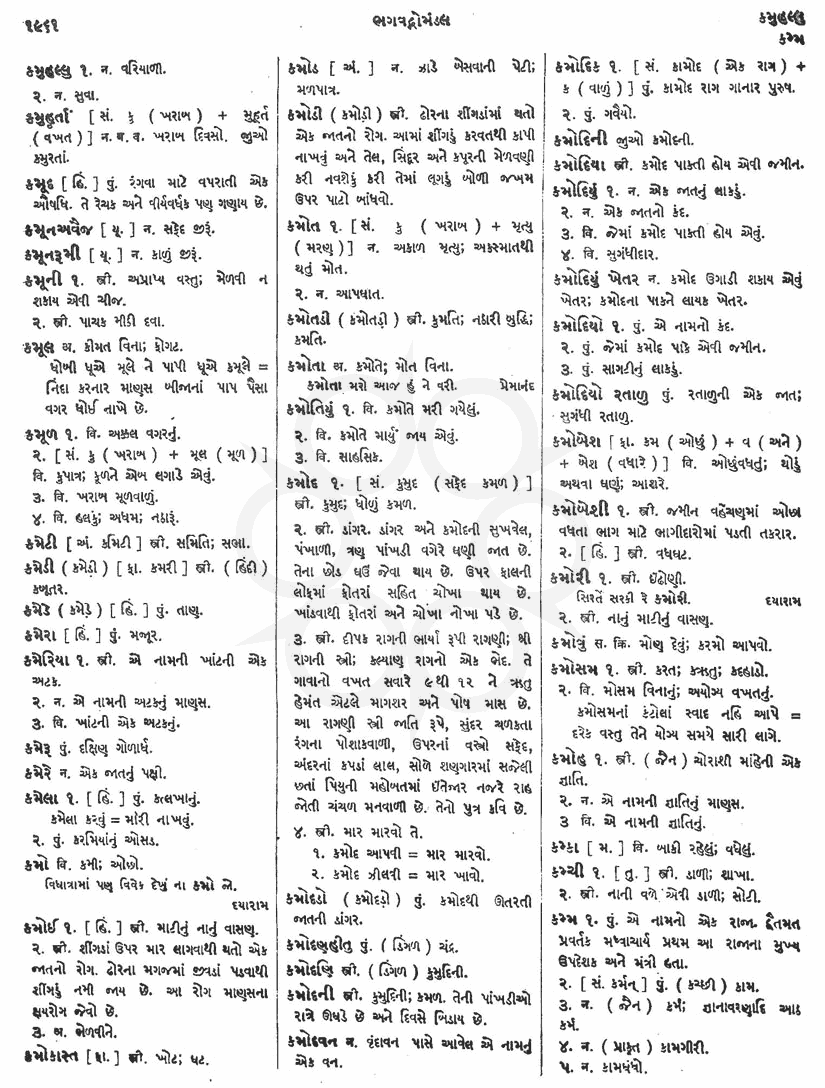 ૧૯૬૧
ભગવદ્ગોમંડલ
કમુહલ્લુ
કમ્મ
કમુહલ્લુ ૧. ન. વરિયાળી.
૨. ન. સુવા.
કમુહૂર્તા [ સં. કુ ( ખરાબ ) + મુહૂર્ત
( વખત ) ] ન. બ. વ. ખરાબ દિવસો. જુઓ
કમુરતાં.
કમૂદ [ હિં. ] પું. રંગવા માટે વપરાતી એક
ઔષધિ. તે રેચક અને વીર્યવર્ધક પણ ગણાય છે.
કમૂનઅવૈજ [ યૂ. ] ન. સફેદ જીરૂં.
કમૂનરૂમી [ યૂ. ] ન. કાળું જીરૂં.
કમૂની ૧. સ્ત્રી. અપ્રાપ્ય વસ્તુ; મેળવી ન
શકાય એવી ચીજ.
૨. સ્ત્રી. પાચક મીઠી દવા.
કમૂલ અ. કીમત વિના; ફોગટ.
ધોબી ધૂએ મૂલે ને પાપી ધૂએ કમૂલે =
નિંદા કરનાર માણસ બીજાનાં પાપ પૈસા
વગર ધોઈ નાખે છે.
કમૂળ ૧. વિ. અક્કલ વગરનું.
૨. [ સં. કુ ( ખરાબ ) + મૂલ ( મૂળ ) ]
વિ. કુપાત્ર; કૂળને એબ લગાડે એવું.
૩. વિ. ખરાબ મૂળવાળું.
૪. વિ. હલકું; અધમ; નઠારૂં.
કમેટી [ અં. કમિટી ] સ્ત્રી. સમિતિ; સભા.
કમેડી ( કમેડ઼ી ) [ ફા. કમરી ] સ્ત્રી. ( હિંદી )
કબૂતર.
કમેડે ( કમેડ઼ે ) [ હિં. ] પું. તાણ.
કમેરા [ હિં. ] પું. મજૂર.
કમેરિયા ૧. સ્ત્રી. એ નામની ખાંટની એક
અટક.
૨. ન. એ નામની અટકનું માણસ.
૩. વિ. ખાંટની એક અટકનું.
કમેરૂ પું. દક્ષિણ ગોળાર્ધ.
કમેરે ન. એક જાતનું પક્ષી.
કમેલા ૧. [ હિં. ] પું. કત્લખાનું.
કમેલા કરવું = મારી નાખવું.
૨. પું. કરમિયાંનું ઓસડ.
કમો વિ. કમી; ઓછો.
વિધાત્રામાં પણ વિવેક દેખું ના કમો લે.
દયારામ
કમોઈ ૧. [ હિં. ] સ્ત્રી. માટીનું નાનું વાસણ.
૨. સ્ત્રી. શીંગડાં ઉપર માર લાગવાથી થતો એક
જાતનો રોગ. ઢોરના મગજમાં જીવડાં પડવાથી
શીંગડું નમી જાય છે. આ રોગ માણસના
ક્ષયરોગ જેવો છે.
૩. અ. ભેળવીને.
કમોકાસ્ત [ ફા. ] સ્ત્રી. ખોટ; ઘટ.
કમોડ [ અં. ] ન. ઝાડે બેસવાની પેટી;
મળપાત્ર.
કમોડી ( કમોડ઼ી ) સ્ત્રી. ઢોરના શીંગડાંમાં થતો
એક જાતનો રોગ. આમાં શીંગડું કરવતથી કાપી
નાખવું અને તેલ, સિંદૂર અને કપૂરની મેળવણી
કરી નવશેકું કરી તેમાં લૂગડું બોળી જખમ
ઉપર પાટો બાંધવો.
કમોત ૧. [ સં. કુ ( ખરાબ ) + મૃત્યુ
( મરણ ) ] ન. અકાળ મૃત્યુ; અકસ્માતથી
થતું મોત.
૨. ન. આપઘાત.
કમોતડી ( કમોતડ઼ી ) સ્ત્રી. કુમતિ; નઠારી બુદ્ધિ;
કમતિ.
કમોતા અ. કમોતે; મોત વિના.
કમોતા મરો આજ હું ને વરી. પ્રેમાનંદ
કમોતિયું ૧. વિ. કમોતે મરી ગયેલું.
૨. વિ. કમોતે માર્યું જાય એવું.
૩. વિ. સાહસિક.
કમોદ ૧. [ સં. કુમુદ ( સફેદ કમળ ) ]
સ્ત્રી. કુમુદ; ધોળું કમળ.
૨. સ્ત્રી. ડાંગર. ડાંગર અને કમોદની સુખવેલ,
પંખાળી, ત્રણ પાંખડી વગેરે ઘણી જાત છે.
તેના છોડ ઘઉં જેવા થાય છે. ઉપર ફાલની
લોફમાં ફોતરાં સહિત ચોખા થાય છે.
ખાંડવાથી ફોતરાં અને ચોખા નોખા પડે છે.
૩. સ્ત્રી. દીપક રાગની ભાર્યા રૂપી રાગણી; શ્રી
રાગની સ્ત્રી; કલ્યાણ રાગનો એક ભેદ. તે
ગાવાનો વખત સવારે ૯થી ૧૨ ને ઋતુ
હેમંત એટલે માગશર અને પોષ માસ છે.
આ રાગણી સ્ત્રી જાતિ રૂપે, સુંદર ચળકતા
રંગના પોશાકવાળી, ઉપરનાં વસ્ત્રો સફેદ,
અંદરનાં કપડાં લાલ, સોળે શણગારમાં સજેલી
છતાં પિયુની મહોબતમાં ઈંતેજાર નજરે રાહ
જોતી ચંચળ મનવાળી છે. તેનો પુત્ર કવિ છે.
૪. સ્ત્રી. માર મારવો તે.
૧. કમોદ આપવી = માર મારવો.
૨. કમોદ ઝીલવી = માર ખાવો.
કમોદડો ( કમોદડ઼ો ) પું. કમોદથી ઊતરતી
જાતની ડાંગર.
કમોદણુહીતુ પું. ( ડિંગળ ) ચંદ્ર.
કમોદણિ સ્ત્રી. ( ડિંગળ ) કુમુદિની.
કમોદની સ્ત્રી. કુમુદિની; કમળ. તેની પાંખડીઓ
રાત્રે ઊઘડે છે અને દિવસે બિડાય છે.
કમોદવન ન. વૃંદાવન પાસે આવેલ એ નામનું
એક વન.
કમોદિક ૧. [ સં. કામોદ ( એક રાગ ) +
ક ( વાળું ) ] પું. કામોદ રાગ ગાનાર પુરુષ.
૨. પું. ગવૈયો.
કમોદિની જુઓ કમોદની.
કમોદિયા સ્ત્રી. કમોદ પાકતી હોય એવી જમીન.
કમોદિયું ૧. ન. એક જાતનું લાકડું.
૨. ન. એક જાતનો કંદ.
૩. વિ. જેમાં કમોદ પાકતી હોય એવું.
૪. વિ. સુગંધીદાર.
કમોદિયું ખેતર ન. કમોદ ઉગાડી શકાય એવું
ખેતર; કમોદના પાકને લાયક ખેતર.
કમોદિયો ૧. પું. એ નામનો કંદ.
૨. પું. જેમાં કમોદ પાકે એવી જમીન.
૩. પું. સાગટીનું લાકડું.
કમોદિયો રતાળુ પું. રતાળુની એક જાત;
સુગંધી રતાળુ.
કમોબેશ [ ફા. કમ ( ઓછું ) + વ ( અને )
+ બેશ ( વધારે ) ] વિ. ઓછુંવધતું; થોડું
અથવા ઘણું; આશરે.
કમોબેશી ૧. સ્ત્રી. જમીન વહેંચણમાં ઓછા
વધતા ભાગ માટે ભાગીદારોમાં પડતી તકરાર.
૨. [ હિં. ] સ્ત્રી. વધઘટ.
કમોરી ૧. સ્ત્રી. ઇંઢોણી.
સિરતેં સરકી રે કમોરી. દયારામ
૨. સ્ત્રી. નાનું માટીનું વાસણ.
કમોવું સ. ક્રિ. મોણ દેવું; કરમો આપવો.
કમોસમ ૧. સ્ત્રી. કરત; કઋતુ; કદહાડો.
૨. વિ. મોસમ વિનાનું; અયોગ્ય વખતનું.
કમોસમનાં કંટોલાં સ્વાદ નહિ આપે =
દરેક વસ્તુ તેને યોગ્ય સમયે સારી લાગે.
કમોહ ૧. સ્ત્રી. ( જૈન ) ચોરાશી માંહેની એક
જ્ઞાતિ.
૨. ન. એ નામની જ્ઞાતિનું માણસ.
૩ વિ. એ નામની જ્ઞાતિનું.
કમ્કા [ મ. ] વિ. બાકી રહેલું; વધેલું.
કમ્ચી ૧. [ તુ. ] સ્ત્રી. ડાળી; શાખા.
૨. સ્ત્રી. નાની વળે એવી ડાળી; સોટી.
કમ્મ ૧. પું. એ નામનો એક રાજા. દ્વૈતમત
પ્રવર્તક મધ્વાચાર્ય પ્રથમ આ રાજાના મુખ્ય
ઉપદેશક અને મંત્રી હતા.
૨. [ સં. કર્મન્ ] પું. ( કચ્છી ) કામ.
૩. ન. ( જૈન ) કર્મ; જ્ઞાનાવરણાદિ આઠ
કર્મ.
૪. ન. ( પ્રાકૃત ) કામગીરી.
૫. ન. કામધંધો.